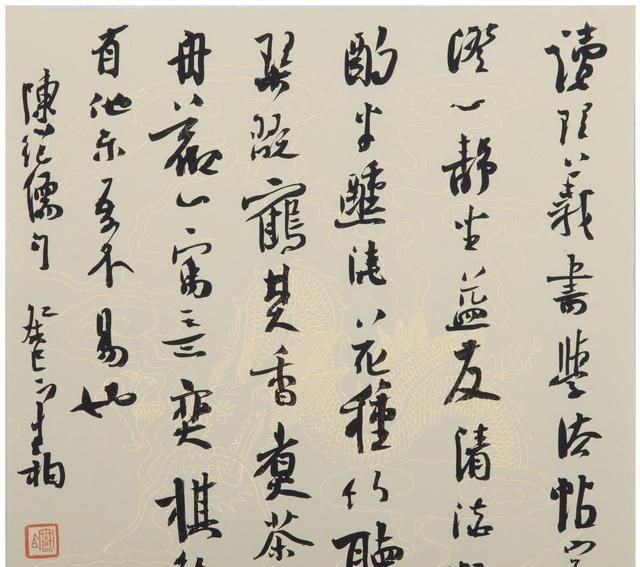 讀理義書學法帖
澄心靜坐益友清談
酌半醺澆花種竹聽
琴玩鶴焚香煑茶
舟觀山寓意奕棋
有他樂吾不易也
陳繼儒句 癸巳